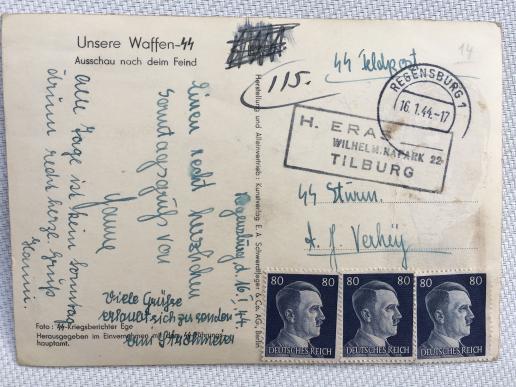 Unsere Waffen-SS
Ausschau nach dem Feind
Einen recht herzlichen
Sonntagsgruß von
Hanne
Alle Tage ist kein Sonntag
drum recht herzl. Grüße
Hanni.
Regensburg d. 16. 1. 44.
Viele Grüße
erlaubt sich zu senden
Foto: SS-Kriegsberichter Ege
Herausgegeben im Einvernehmen mit
hauptamt.
Herstellung und Alleinvertrieb: Kunstverlag E. A. Schwerdtfeger & Co. AG., Berlin
115.
SS Feldpost
14
REGENSBURG 1
16.1.44.-17
H. ERAS
WILHELM.NAPARK 22
TILBURG
SS Sturm.
80 80
DEUTSCHES REICH
80 80
DEUTSCHES REICH
80 80
DEUTSCHES REICH